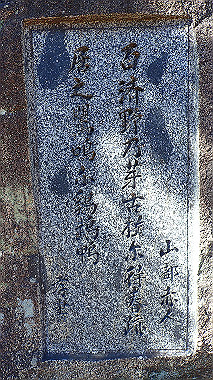 山部赤人
百済野乃芽古枝尓待春跡
居之鶯鳴尓鶏鵡鴨